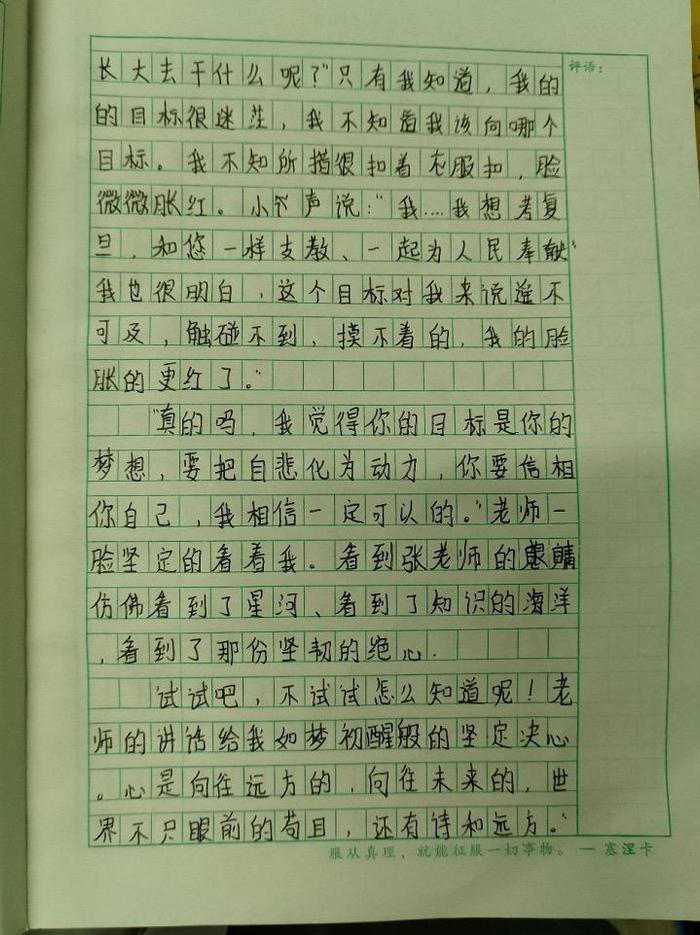 评语：
长大去干什么呢？"只有我知道，我的
的目标很迷茫，我不知道我该向哪个
目标。我不知所措很扣着衣服扣，脸
微微胀红。小声说："我....我想考复
旦，和您一样支教、一起为人民奉献"
我也很明白，这个目标对我来说遥不
可及，触碰不到，摸不着的，我的脸
胀的更红了。"
"真的吗，我觉得你的目标是你的
梦想，要把自悲化为动力，你要信相
你自己，我相信一定可以的。"老师一
脸坚定的看着我。看到张老师的
仿佛看到了星河、看到了知识的海洋
，看到了那份坚韧的绝心.
试试吧，不试试怎么知道呢！老
师的讲话给我如梦初醒般的坚定决心
。心是向往远方的，向往未来的，世
界不只眼前的苟且，还有诗和远方。"
服从真理，就能征服一切事物。 — 塞涅卡